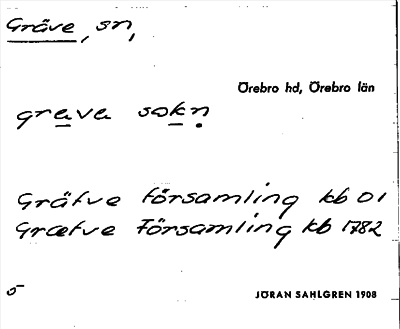 Gräve, sn,
Örebro hd, Örebro län
grava sokn
Gräfve församling kb 01
Græfve Församling kb 1782
5
JÖRAN SAHLGREN 1908